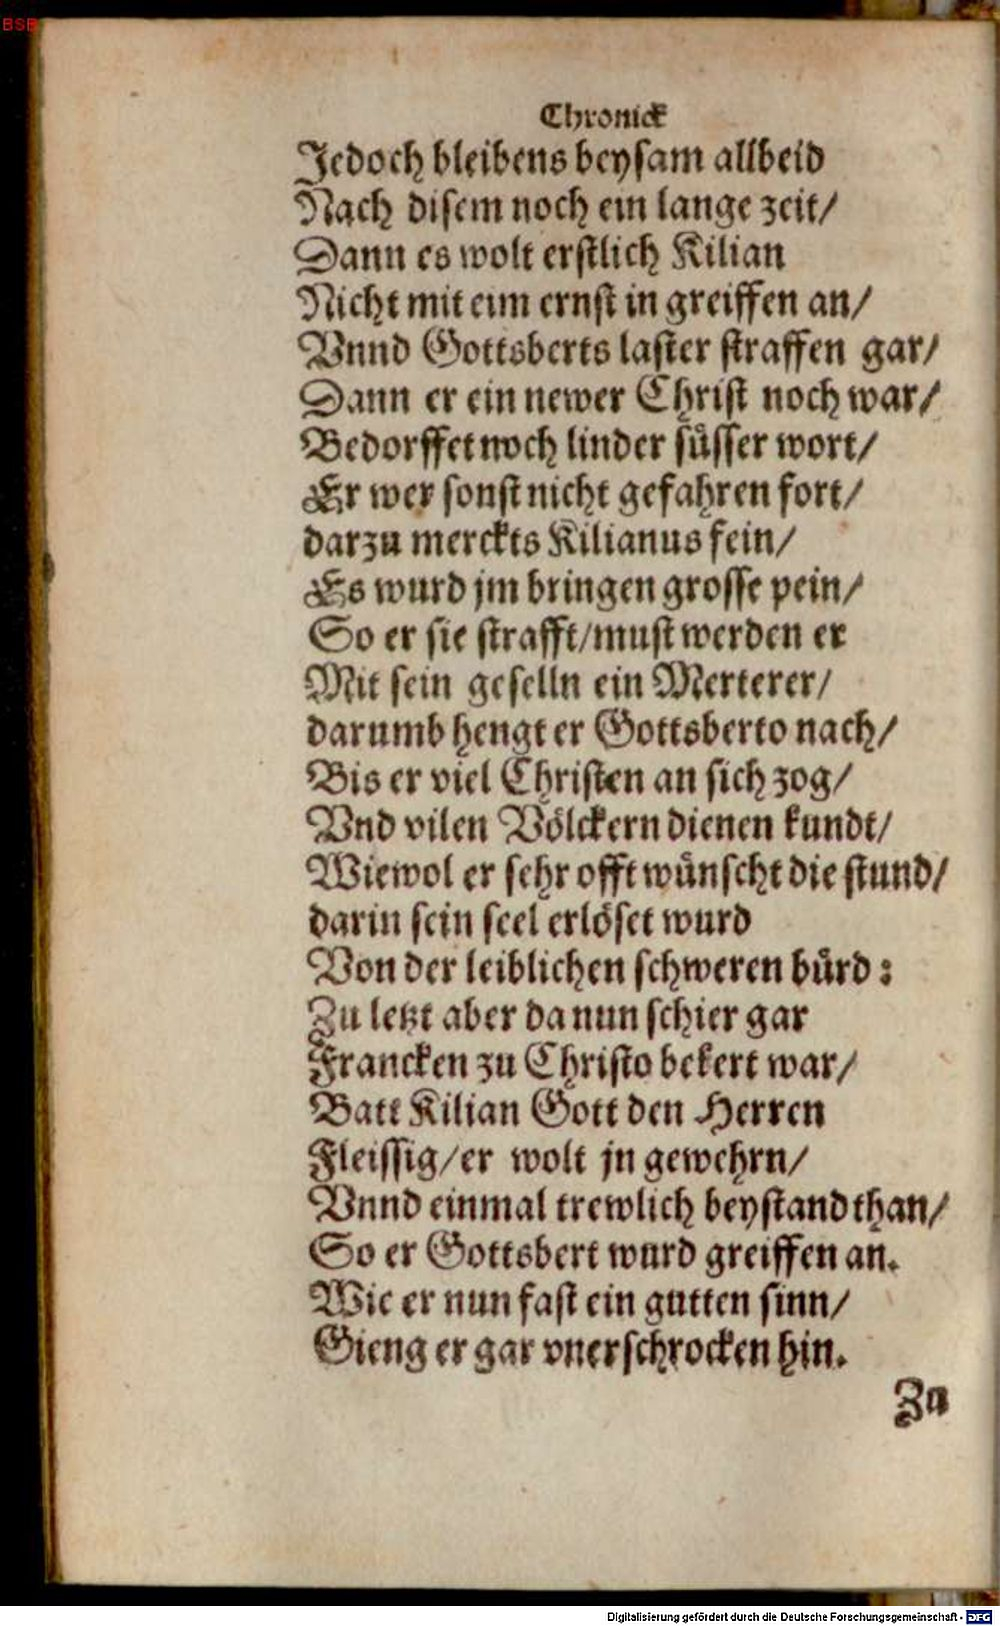 BSB
Chronick
Jedoch bleibens beysam allbeid
Nach disem noch ein lange zeit/
Dann es wolt erstlich Kilian
Nicht mit eim ernst in greiffen an/
Vnnd Gottsberts laster straffen gar/
Dann er ein newer Christ noch war/
Bedorffet noch linder süsser wort/
Er wer sonst nicht gefahren fort/
darzu merckts Kilianus fein/
Es wurd jm bringen grosse pein/
So er sie strafft/must werden er
Mit sein geselln ein Merterer/
darumb hengt er Gottsberto nach/
Bis er viel Christen an sich zog/
Vnd vilen Völckern dienen kundt/
Wiewol er sehr offt wünscht die stund/
darin sein seel erlöset wurd
Von der leiblichen schweren bürd:
Zu letzt aber da nun schier gar
Francken zu Christo bekert war/
Batt Kilian Gott den Herren
Fleissig/er wolt jn gewehrn/
Vnnd einmal trewlich beystand than/
So er Gottsbert wurd greiffen an.
Wie er nun fast ein gutten sinn/
Gieng er gar vnerschrocken hin.
Zu
Digitalisierung gefördert durch die Deutsche Forschungsgemeinschaft - DFG